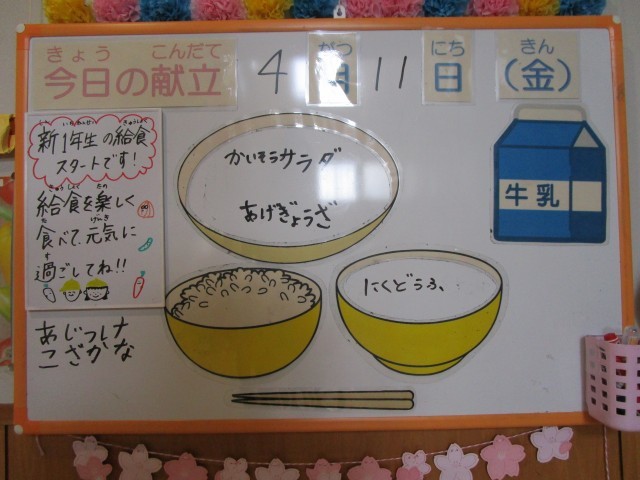 きょう こんだて
今日の献立
4 がつ 11 にち
月 日
きん
(金)
新1年生の給食
スタートです!
きゅうしょく
給食を楽しく
食べて、元気に
過ごしてね!!
かいそうサラダ
あげぎょうざ
牛乳
にくどうふ
あじつけ
こざかな